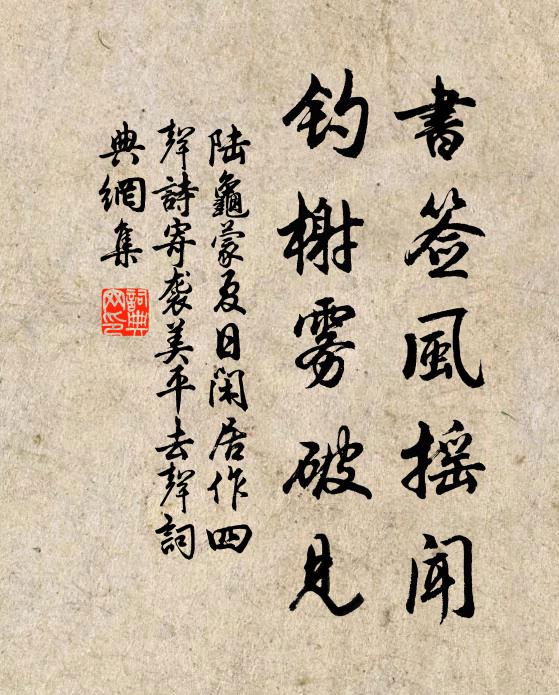 書签風摇聞
釣榭雾破見
陆龜蒙夏日闲居作四
聲詩寄袭美平去聲詞
典網集
詞典
网印